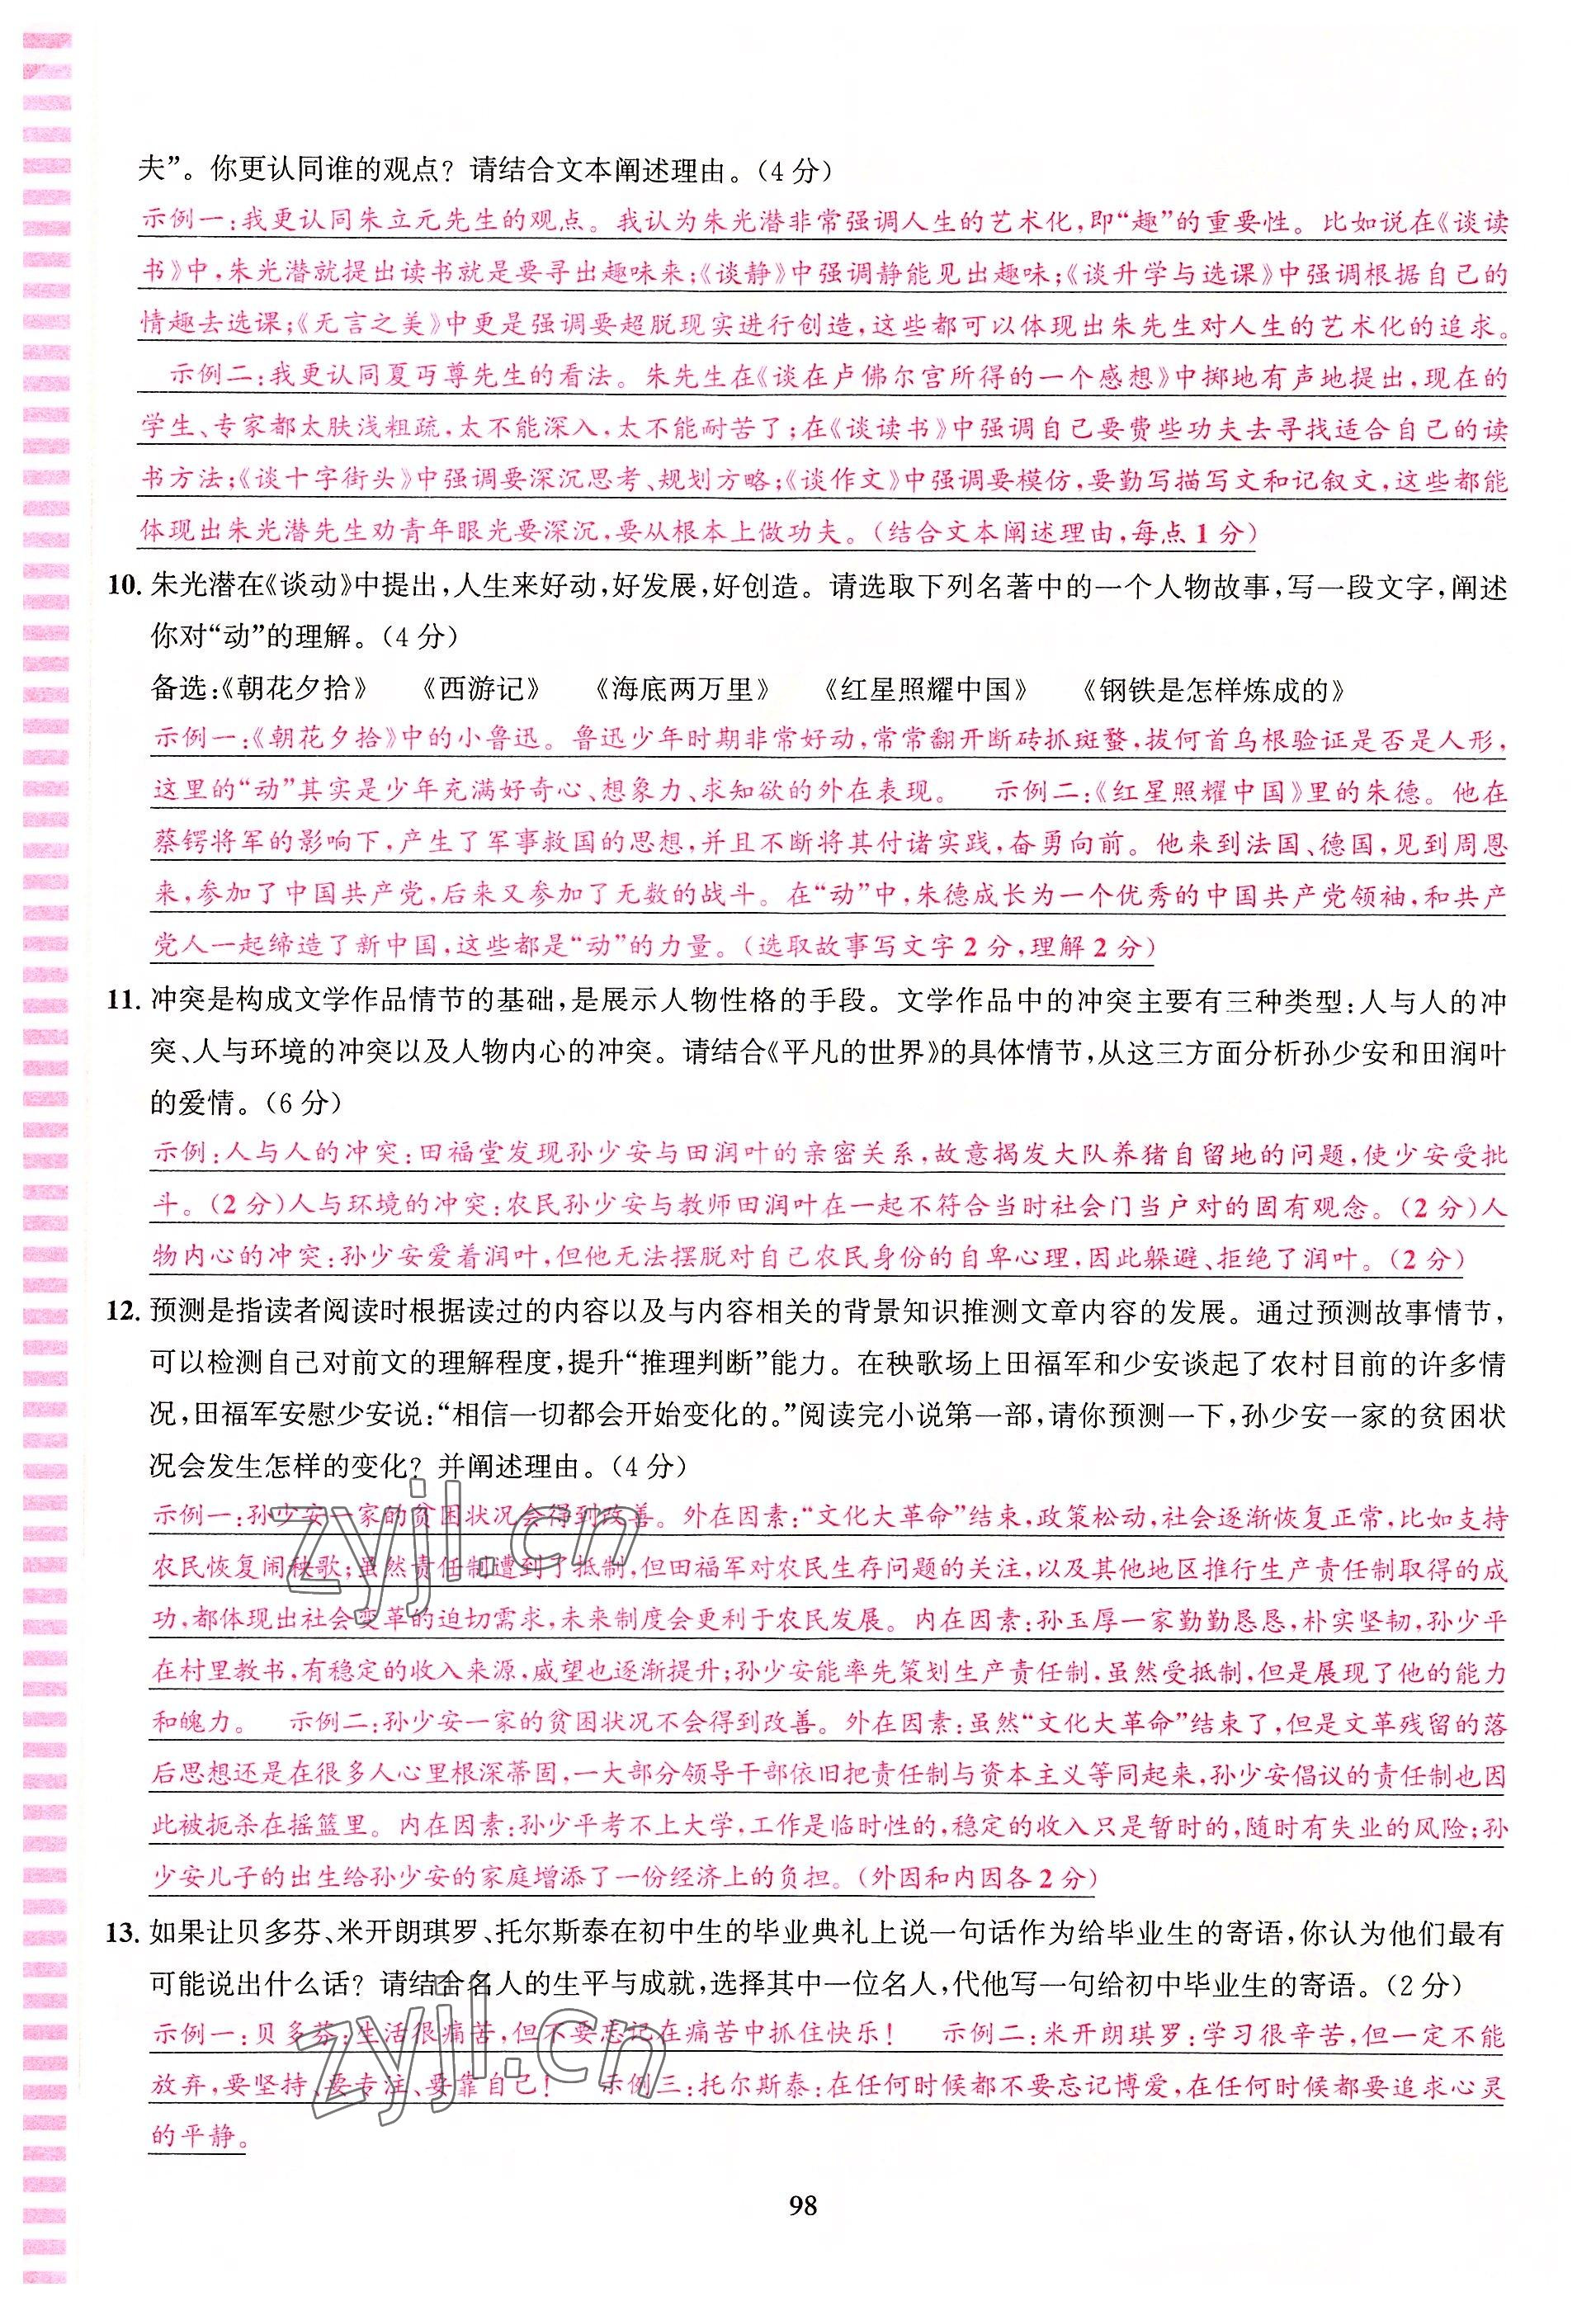 夫”。你更认同谁的观点？请结合文本阐述理由。（4 分）
示例一：我更认同朱立元先生的观点。我认为朱光潜非常强调人生的艺术化，即“趣”的重要性。比如说在《谈读
书》中，朱光潜就提出读书就是要寻出趣味来；《谈静》中强调静能见出趣味；《谈升学与选课》中强调根据自己的
情趣去选课；《无言之美》中更是强调要超脱现实进行创造，这些都可以体现出朱先生对人生的艺术化的追求。
示例二：我更认同夏丏尊先生的看法。朱先生在《谈在卢佛尔宫所得的一个感想》中掷地有声地提出，现在的
学生、专家都太肤浅粗疏，太不能深入，太不能耐苦了；在《谈读书》中强调自己要费些功夫去寻找适合自己的读
书方法；《谈十字街头》中强调要深沉思考、规划方略；《谈作文》中强调要模仿，要勤写描写文和记叙文，这些都能
体现出朱光潜先生劝青年眼光要深沉，要从根本上做功夫。（结合文本阐述理由，每点 1 分）
10. 朱光潜在《谈动》中提出，人生来好动，好发展，好创造。请选取下列名著中的一个人物故事，写一段文字，阐述
你对“动”的理解。（4 分）
备选：《朝花夕拾》 《西游记》 《海底两万里》 《红星照耀中国》 《钢铁是怎样炼成的》
示例一：《朝花夕拾》中的小鲁迅。鲁迅少年时期非常好动，常常翻开断砖抓斑蝥，拔何首乌根验证是否是人形，
这里的“动”其实是少年充满好奇心、想象力、求知欲的外在表现。 示例二：《红星照耀中国》里的朱德。他在
蔡锷将军的影响下，产生了军事救国的思想，并且不断将其付诸实践，奋勇向前。他来到法国、德国，见到周恩
来，参加了中国共产党，后来又参加了无数的战斗。在“动”中，朱德成长为一个优秀的中国共产党领袖，和共产
党人一起缔造了新中国，这些都是“动”的力量。（选取故事写文字 2 分，理解 2 分）
11. 冲突是构成文学作品情节的基础，是展示人物性格的手段。文学作品中的冲突主要有三种类型：人与人的冲
突、人与环境的冲突以及人物内心的冲突。请结合《平凡的世界》的具体情节，从这三方面分析孙少安和田润叶
的爱情。（6 分）
示例：人与人的冲突：田福堂发现孙少安与田润叶的亲密关系，故意揭发大队养猪自留地的问题，使少安受批
斗。（2 分）人与环境的冲突：农民孙少安与教师田润叶在一起不符合当时社会门当户对的固有观念。（2 分）人
物内心的冲突：孙少安爱着润叶，但他无法摆脱对自己农民身份的自卑心理，因此躲避、拒绝了润叶。（2 分）
12. 预测是指读者阅读时根据读过的内容以及与内容相关的背景知识推测文章内容的发展。通过预测故事情节，
可以检测自己对前文的理解程度，提升“推理判断”能力。在秧歌场上田福军和少安谈起了农村目前的许多情
况，田福军安慰少安说：“相信一切都会开始变化的。”阅读完小说第一部，请你预测一下，孙少安一家的贫困状
况会发生怎样的变化？并阐述理由。（4 分）
示例一：孙少安一家的贫困状况会得到改善。外在因素：“文化大革命”结束，政策松动，社会逐渐恢复正常，比如支持
农民恢复闹秧歌；虽然责任制遭到了抵制，但田福军对农民生存问题的关注，以及其他地区推行生产责任制取得的成
功，都体现出社会变革的迫切需求，未来制度会更利于农民发展。内在因素：孙玉厚一家勤勤恳恳，朴实坚韧，孙少平
在村里教书，有稳定的收入来源，威望也逐渐提升；孙少安能率先策划生产责任制，虽然受抵制，但是展现了他的能力
和魄力。 示例二：孙少安一家的贫困状况不会得到改善。外在因素：虽然“文化大革命”结束了，但是文革残留的落
后思想还是在很多人心里根深蒂固，一大部分领导干部依旧把责任制与资本主义等同起来，孙少安倡议的责任制也因
此被扼杀在摇篮里。内在因素：孙少平考不上大学，工作是临时性的，稳定的收入只是暂时的，随时有失业的风险；孙
少安儿子的出生给孙少安的家庭增添了一份经济上的负担。（外因和内因各 2 分）
13. 如果让贝多芬、米开朗琪罗、托尔斯泰在初中生的毕业典礼上说一句话作为给毕业生的寄语，你认为他们最有
可能说出什么话？请结合名人的生平与成就，选择其中一位名人，代他写一句给初中毕业生的寄语。（2 分）
示例一：贝多芬：生活很痛苦，但不要忘记在痛苦中抓住快乐！ 示例二：米开朗琪罗：学习很辛苦，但一定不能
放弃，要坚持、要专注、要靠自己！ 示例三：托尔斯泰：在任何时候都不要忘记博爱，在任何时候都要追求心灵
的平静。
98
zyjl.cn
zyjl.cn